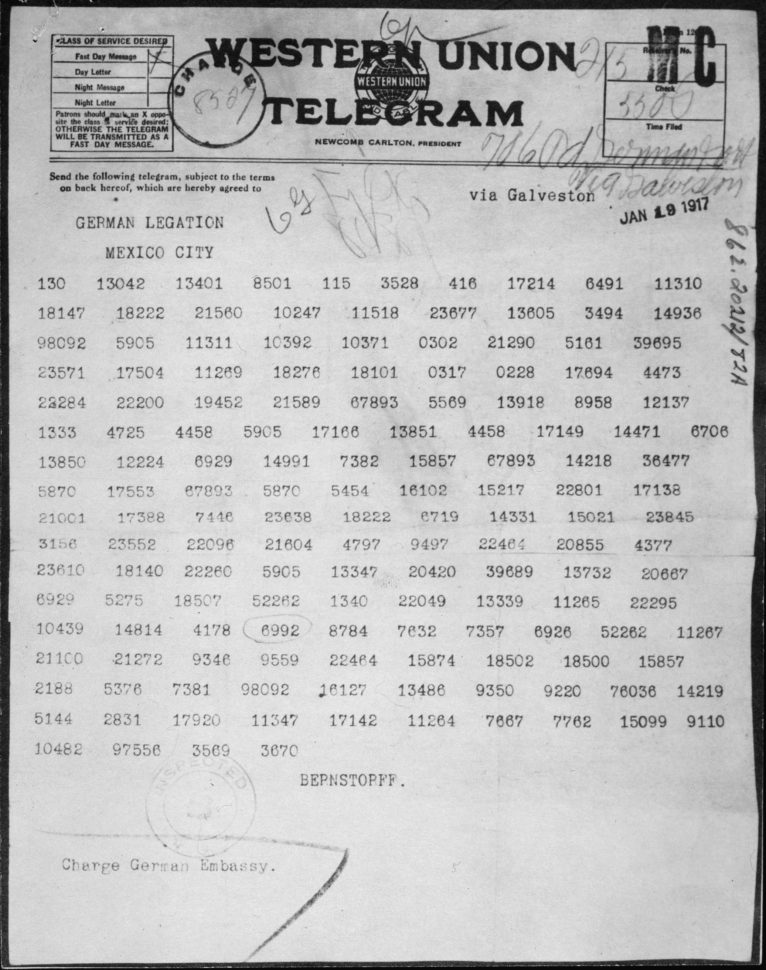 CLASS OF SERVICE DESIRED
Fast Day Message
Day Letter
Night Message
Night Letter
Patrons should mark an X oppo-
site the class of service desired;
OTHERWISE THE TELEGRAM
WILL BE TRANSMITTED AS A
FAST DAY MESSAGE.
CHARGE
WESTERN UNION
WESTERN UNION
TELEGRAM
NEWCOMB CARLTON, PRESIDENT
MC
Receiver's No.
Check
Time Filed
Send the following telegram, subject to the terms
on back hereof, which are hereby agreed to
via Galveston
via Galveston
JAN 19 1917
GERMAN LEGATION
MEXICO CITY
130 13042 13401 8501 115 3528 416 17214 6491 11310
18147 18222 21560 10247 11518 23677 13605 3494 14936
98092 5905 11311 10392 10371 0302 21290 5161 39695
23571 17504 11269 18276 18101 0317 0228 17694 4473
22284 22200 19452 21589 67893 5569 13918 8958 12137
1333 4725 4458 5905 17166 13851 4458 17149 14471 6706
13850 12224 6929 14991 7382 15857 67893 14218 36477
5870 17553 67893 5870 5454 16102 15217 22801 17138
21001 17388 7446 23638 18222 6719 14331 15021 23845
3156 23552 22096 21604 4797 9497 22464 20855 4377
23610 18140 22260 5905 13347 20420 39689 13732 20667
6929 5275 18507 52262 1340 22049 13339 11265 22295
10439 14814 4178 6992 8784 7632 7357 6926 52262 11267
21100 21272 9346 9559 22464 15874 18502 18500 15857
2188 5376 7381 98092 16127 13486 9350 9220 76036 14219
5144 2831 17920 11347 17142 11264 7667 7762 15099 9110
10482 97556 3569 3670
BEPNSTOPFF.
INSPECTED
Charge German Embassy.
862.20212/82A